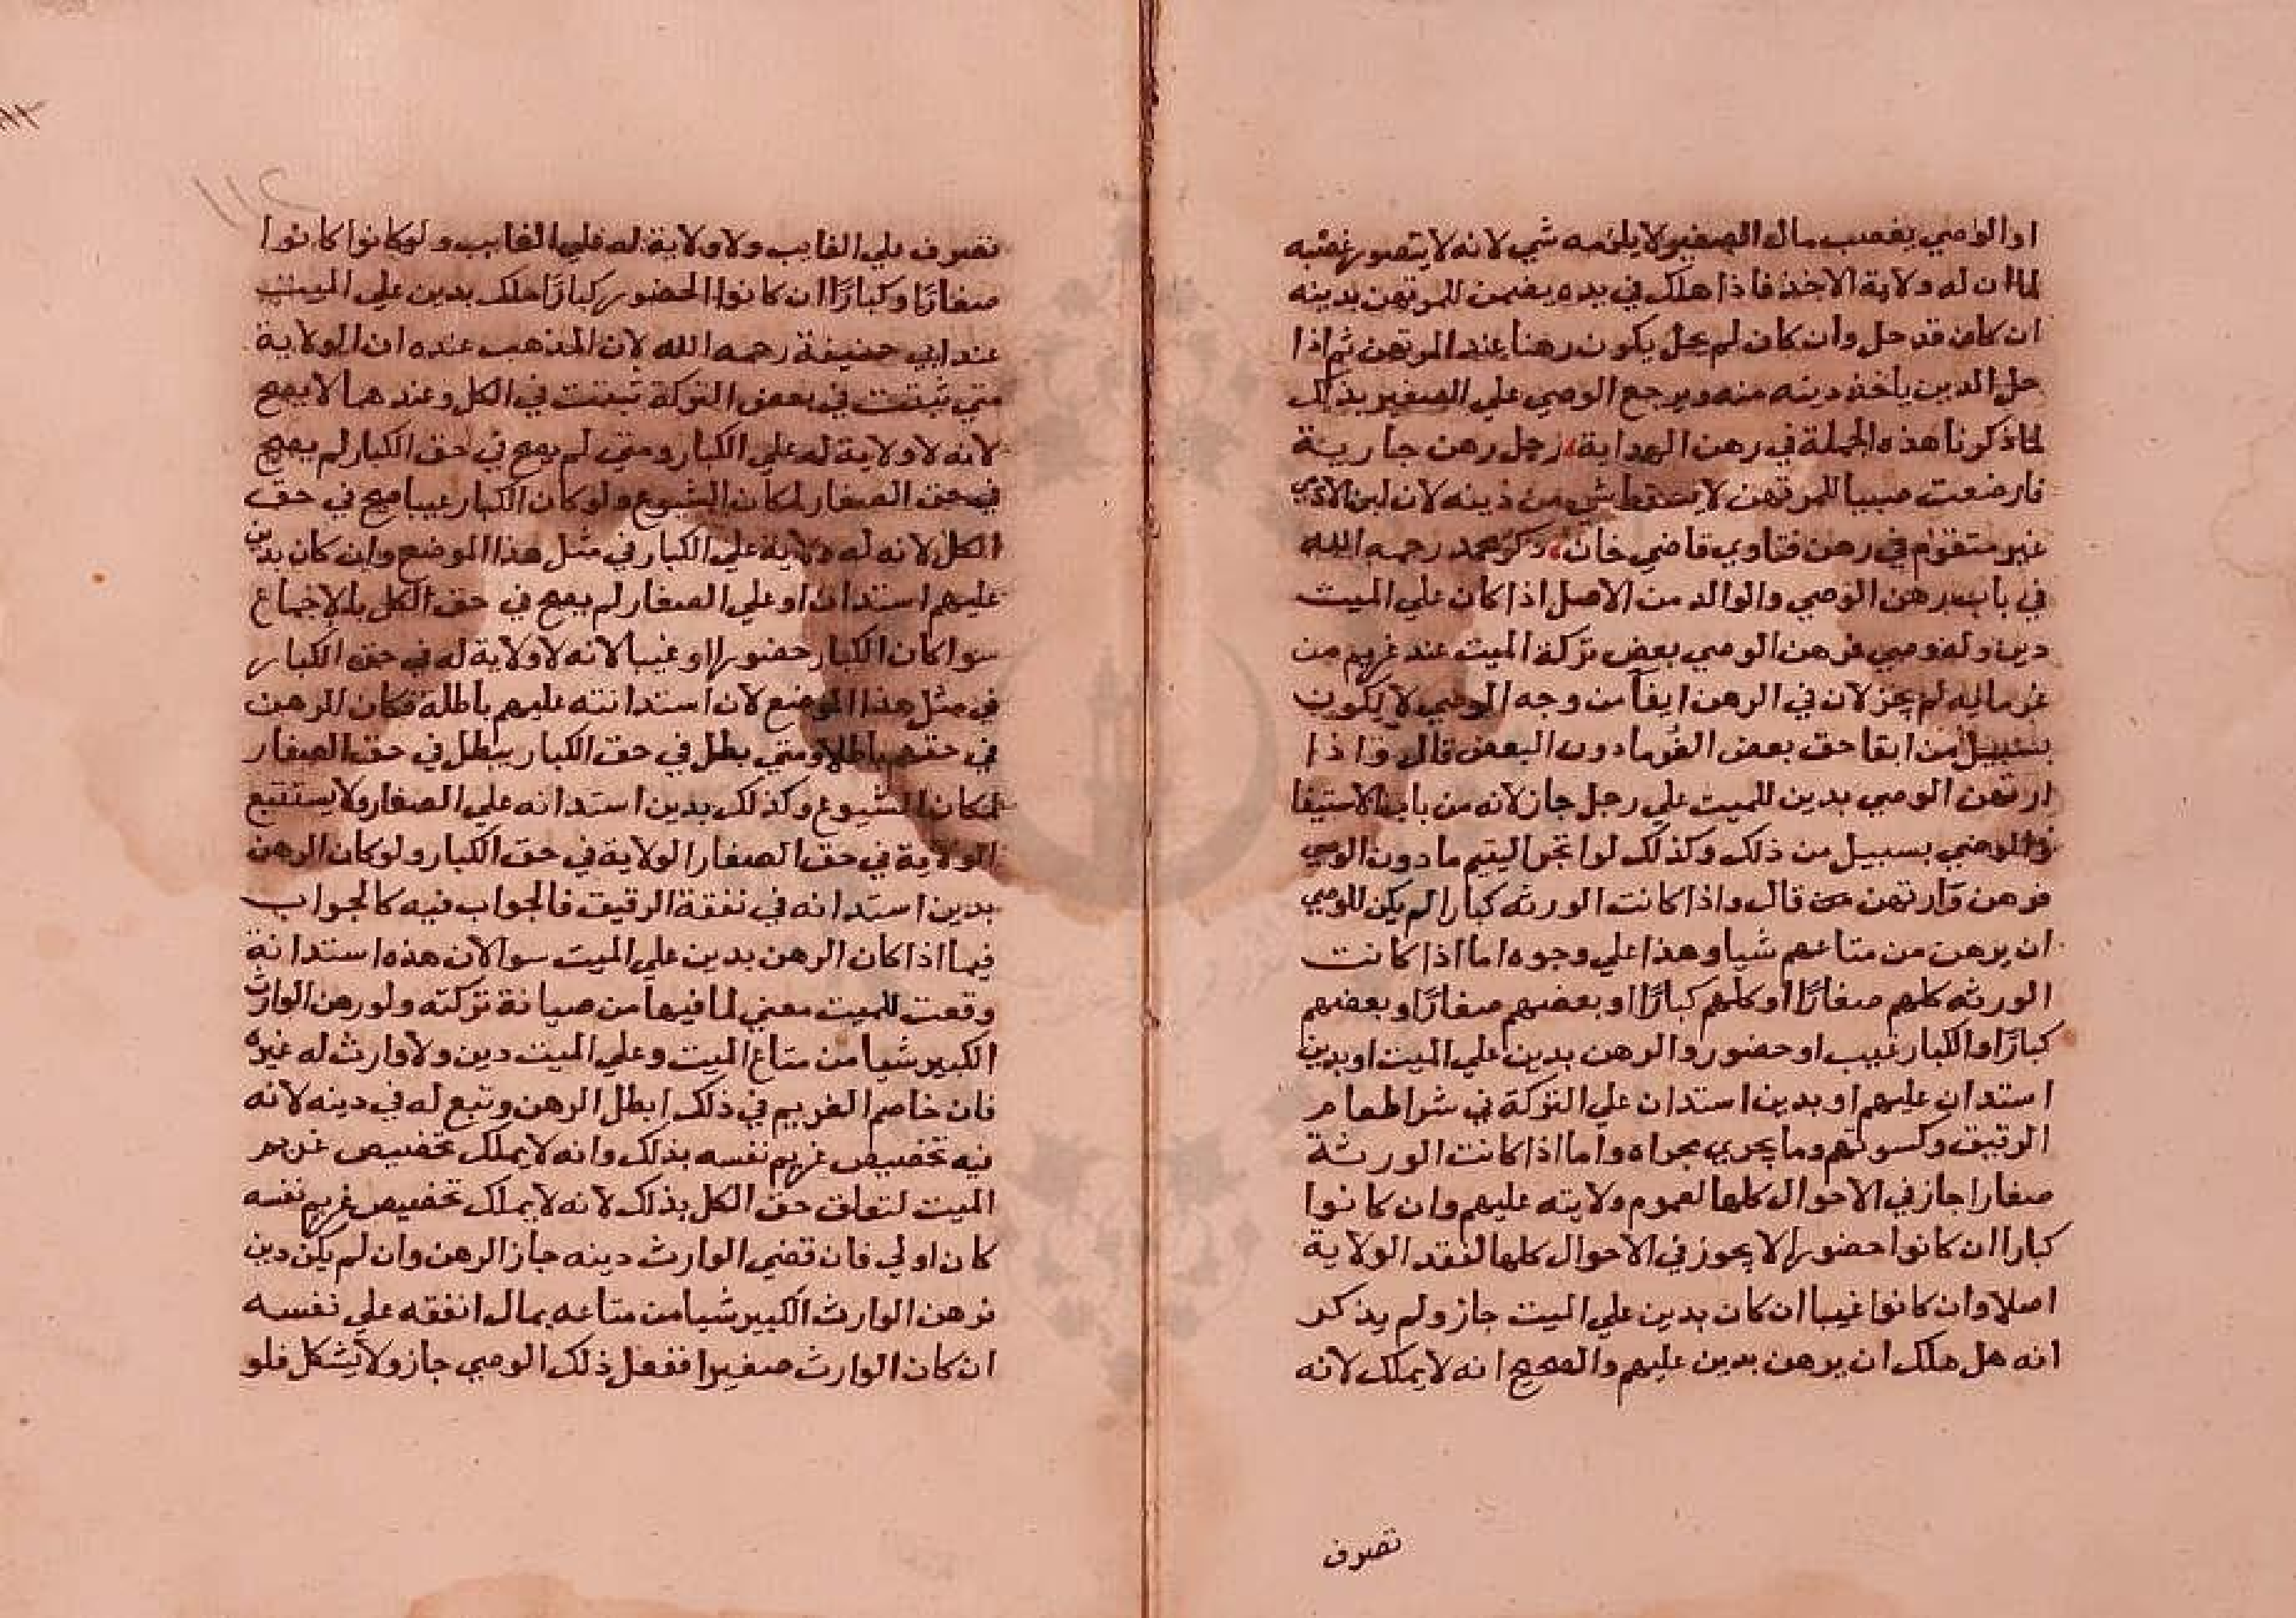 او الوصي يغصب مال الصغير لا يلزمه شي لانه لا يتصور غصبه
لما ان له ولاية الاخذ فاذا هلك في يده يضمن للمرتهن بدينه
ان كان قد حل وان كان لم يحل يكون رهنا عند المرتهن ثم اذا
حل الدين ياخذ دينه منه ويرجع الوصي علي الصغير بذلك
لما ذكرنا هذه الجملة في رهن الهداية، رجل رهن جارية
فارضعت صبيا للمرتهن لا يسقط شي من دينه لان لبن الادمي
غير متقوم في رهن فتاوي قاضي خان، ذكر محمد رحمه الله
في باب رهن الوصي والوالد من الاصل اذا كان علي الميت
دين وله وصي فرهن الوصي بعض تركة الميت عند غريم من
غرمايه لم يجز لان في الرهن ايفآ من وجه الوصي لا يكون
بسبيل من ابقا حق بعض الغرما دون البعض قال واذا
ارتهن الوصي بدين للميت علي رجل جاز لانه من باب الاستيفا
والوصي بسبيل من ذلك وكذلك لو اتجر اليتيم ماذون الوصي
فرهن وارتهن صح قال واذا كانت الورثه كبارا لم يكن للوصي
ان يرهن من متاعهم شيا وهذا علي وجوه اما اذا كانت
الورثه كلهم صغارًا او كلهم كبارًا او بعضهم صغارًا وبعضهم
كبارًا والكبار غيب او حضور والرهن بدين علي الميت او بدين
استدان عليهم او بدين استدان علي التركة في شرا طعام
الرقيق وكسوتهم وما يجري مجراه واما اذا كانت الورثة
صغارا جاز في الاحوال كلها لعموم ولايته عليهم وان كانوا
كبارا ان كانوا حضورا لا يجوز في الاحوال كلها لفقد الولاية
اصلا وان كانوا غيبا ان كان بدين علي الميت جاز ولم يذكر
انه هل ملك ان يرهن بدين عليهم والصحيح انه لا يملك لانه
تصرف
١١٢
تصرف علي الغايب ولا ولاية له علي الغايب ولو كانوا كانوا
صغارًا وكبارًا ان كانوا الحضور كبارًا ملك بدين علي الميت
عند ابي حنيفة رحمه الله لان المذهب عنده ان الولاية
متي ثبتت في بعض التركة تبتت في الكل وعندهما لا يصح
لانه لا ولاية له علي الكبار ومتي لم يصح في حق الكبار لم يصح
في حق الصغار لمكان الشيوع ولو كان الكبار غيبا صح في حق
الكل لانه له ولاية علي الكبار في مثل هذا الموضع وان كان بدين
عليهم استدان او علي الصغار لم يصح في حق الكل بالاجماع
سوا كان الكبار حضورا او غيبا لانه لا ولاية له في حق الكبار
في مثل هذا الموضع لان استدانته عليهم باطلة فكان الرهن
في حقهم باطلا ومتي بطل في حق الكبار يبطل في حق الصغار
لمكان الشيوع وكذلك بدين استدانه علي الصغار ولا يستتبع
الولاية في حق الصغار الولاية في حق الكبار ولو كان الرهن
بدين استدانه في نفقة الرقيق فالجواب فيه كالجواب
فيما اذا كان الرهن بدين علي الميت سوا لان هذه استدانة
وقعت للميت معني لما فيها من صيانة تركته ولو رهن الوارث
الكبير شيا من متاع الميت وعلي الميت دين ولا وارث له غيره
فان خاصم الغريم في ذلك ابطل الرهن وتبع له في دينه لانه
فيه تخصيص غريم نفسه بذلك وانه لا يملك تخصيص غريم
الميت لتعلق حق الكل بذلك لانه لا يملك تخصيص غريم نفسه
كان اولي فان قضي الوارث دينه جاز الرهن وان لم يكن دين
فرهن الوارث الكبير شيا من متاعه بمال انفقه علي نفسه
ان كان الوارث صغيرا ففعل ذلك الوصي جاز ولا يشكل فلو